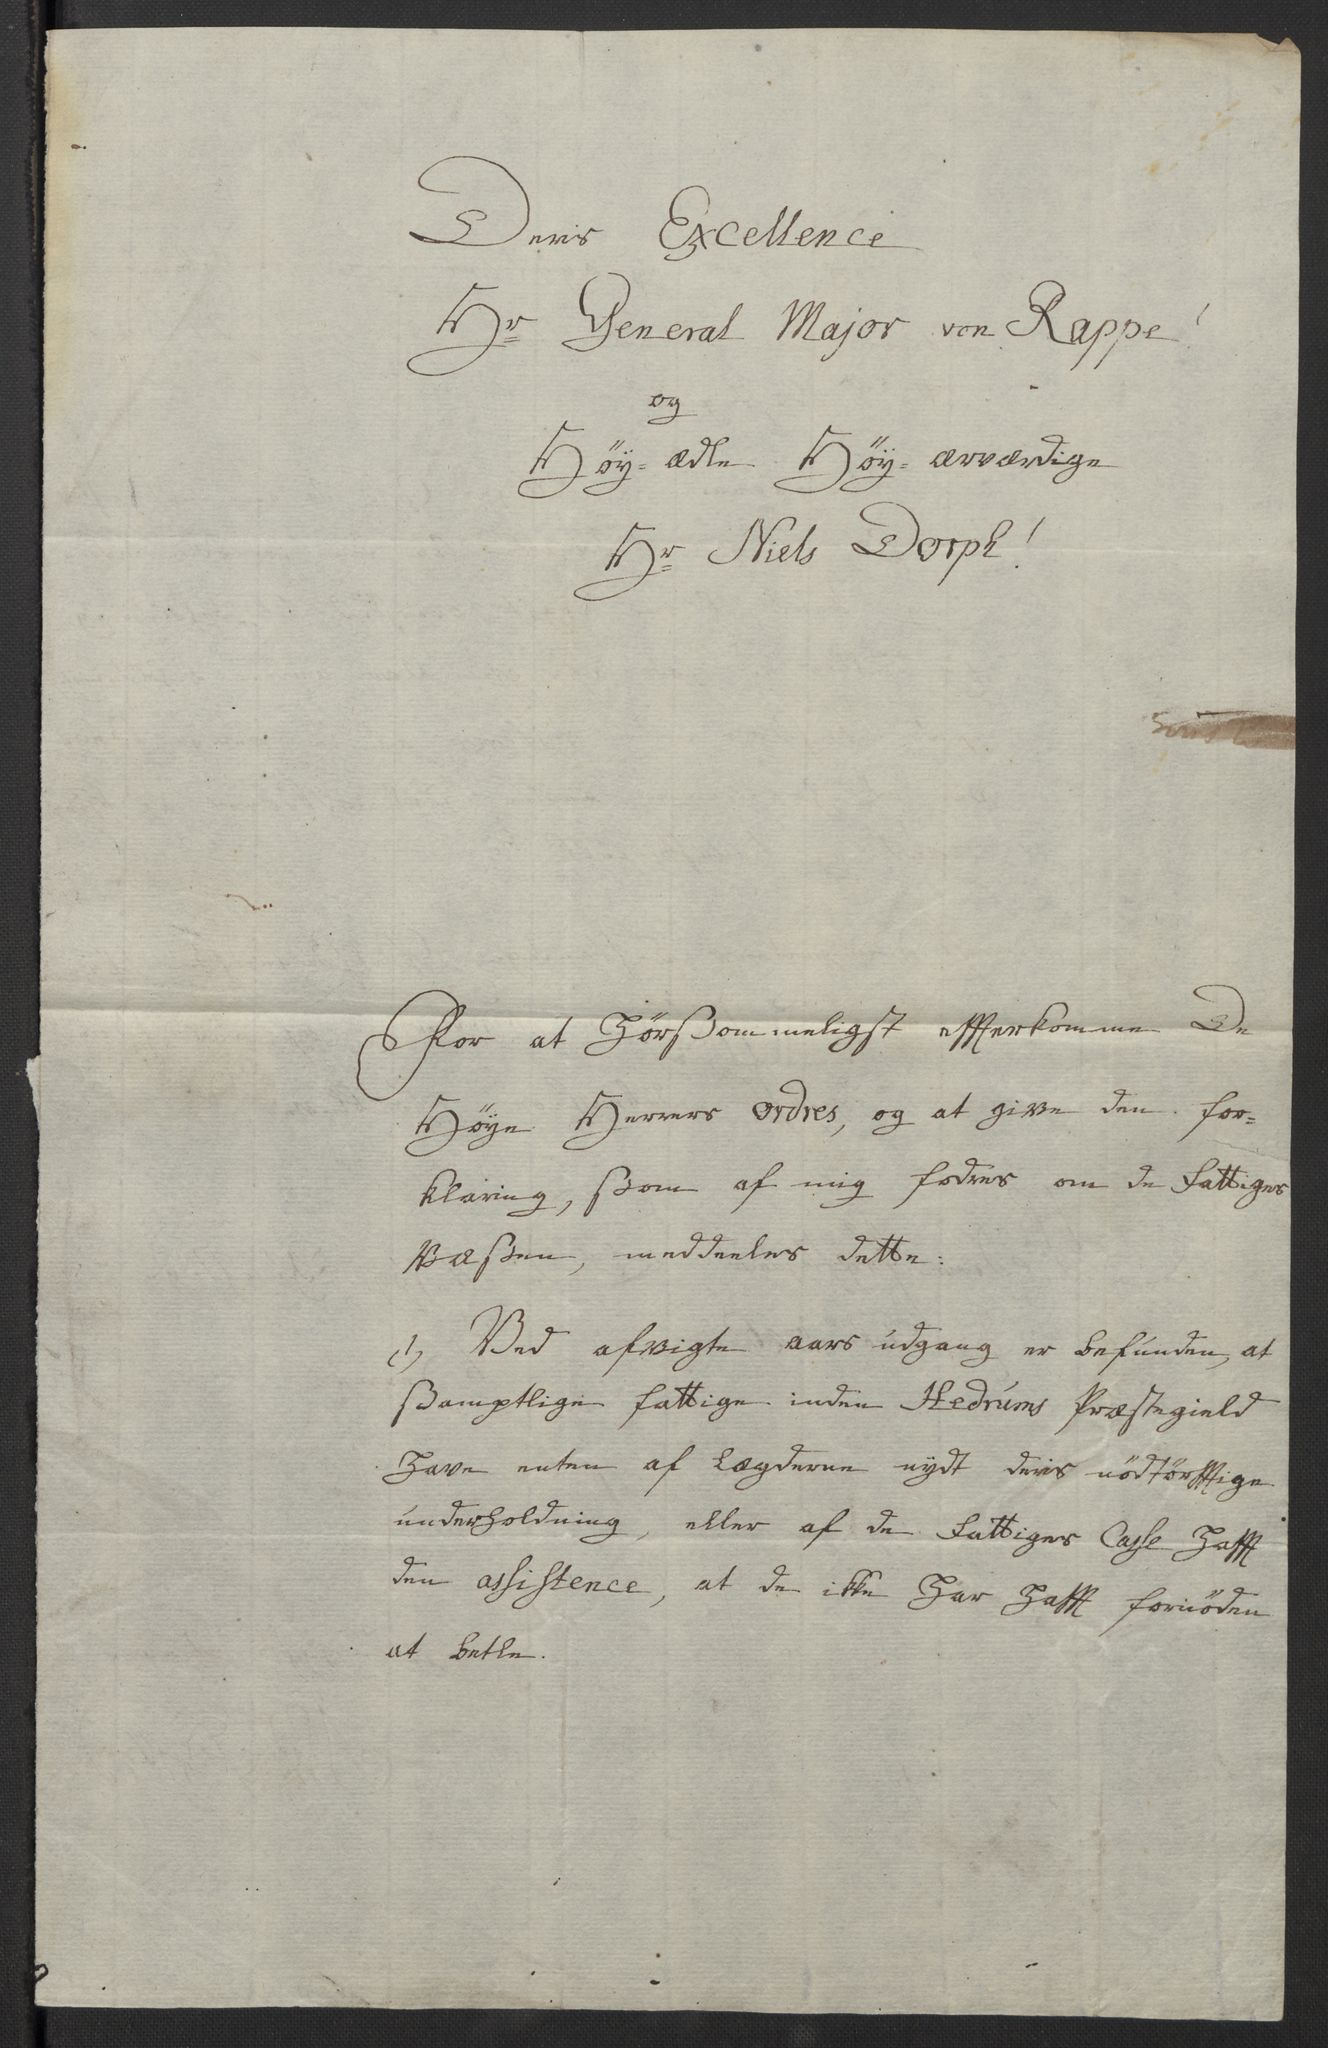 Deris Excellence
Hr General Major von Rappe!
og
Höÿ-ædle Höÿ-ærværdige
Hr Niels Dorph!
For at hörsommeligst efftterkomme De
Höÿe Herrers ordres, og at give den for=
klaring, som af mig fodres om de fattiges
Væsen, meddeeles dette:
1, Ved afvigte aars udgang er befunden, at
samptlige fattige inden Hedrums Præstegield
have enten af Lægderne nÿdt deris nödtörfftige
underholdning, eller af de fattiges Casse hafft
den assistence, at de ikke har hafft fornöden
at betle.